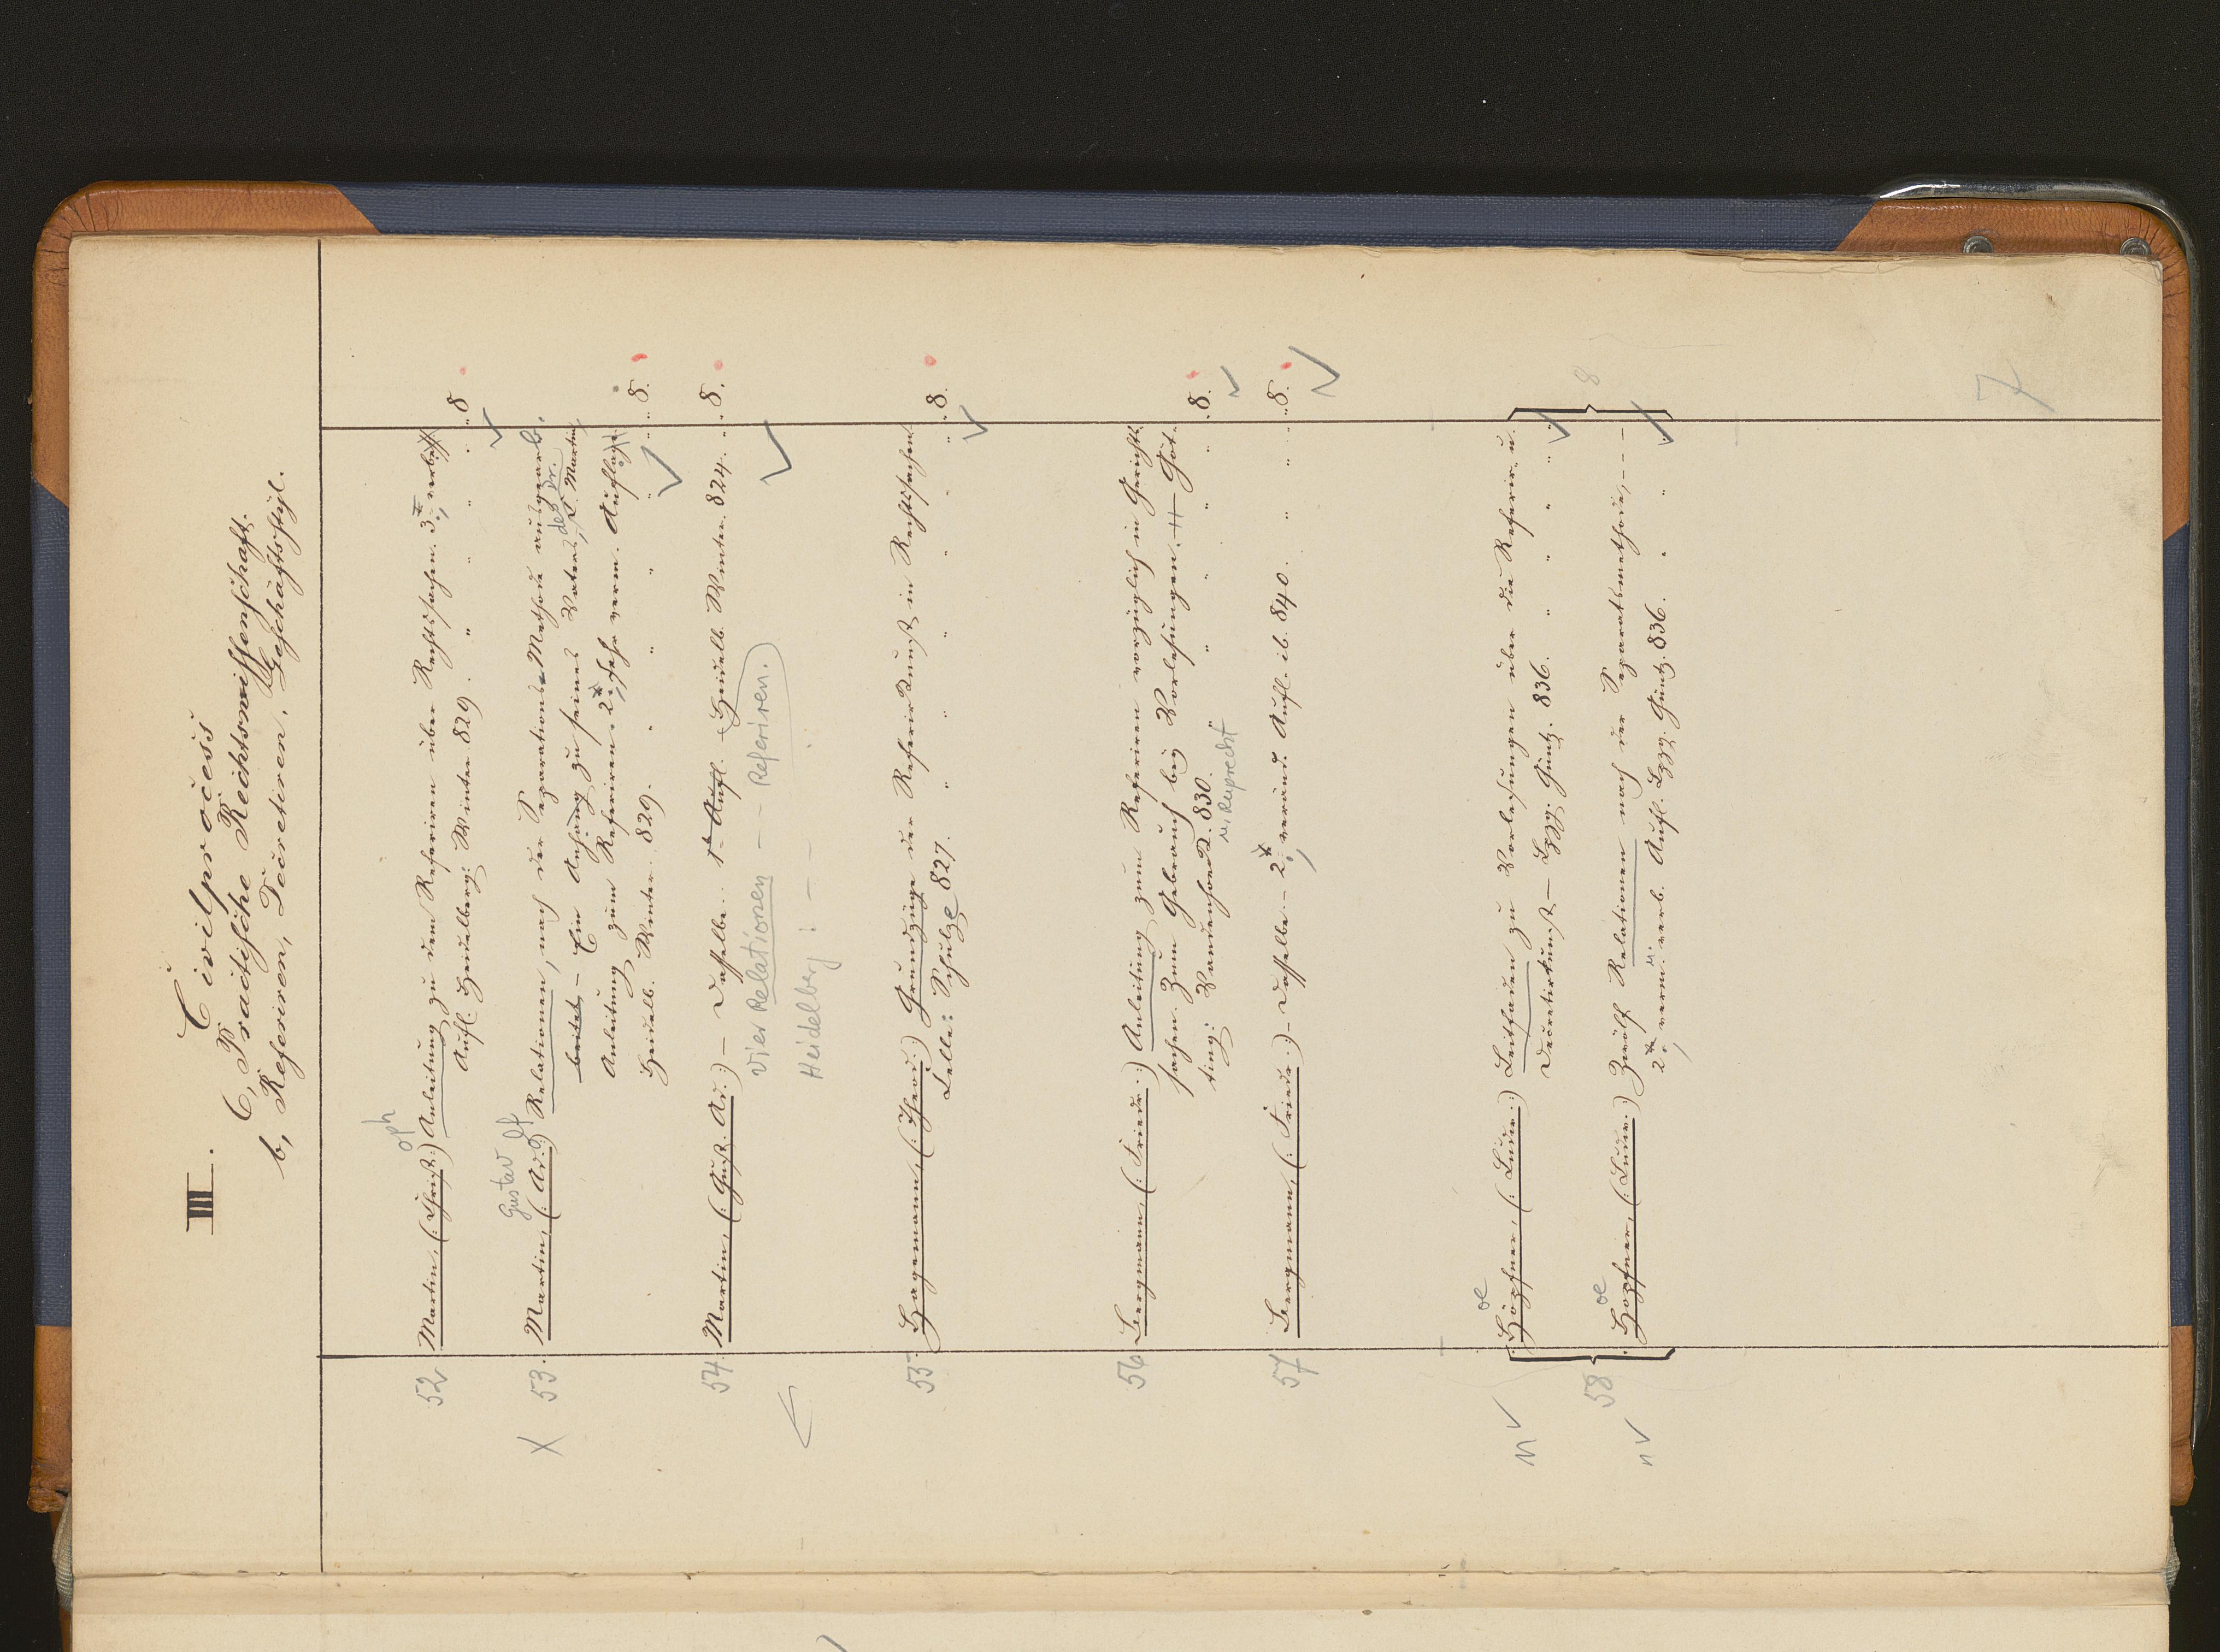 III. Civilprocess
C, Practische Rechtswissenschaft.
b, Referiren, Decretiren, Geschäftsstyl.
oph
52 Martin, (: Christ:) Anleitung zu dem Referiren über Rechtssachen. 3te, verbess
Aufl. Heidelberg: Winter 829. " " " " 8
Gustav
X 53. Martin, (: Ad:) Relationen, nach der Separations-Methode ausgearb.
beitet, – Ein Anhang zu seines Vaters, des Dr. C. Martin,
Anleitung zum Referiren. 2te, sehr verm. Auflage
Heidelb. Winter 829. " " " " " 8.
54. Martin, (: Gust. Ad:) – Dasselbe. 1te Aufl. Heidelb. Winter. 824. " 8.
Vier Relationen – – Referiren.)
Heidelberg: – –
55. Hagemann, (: Theod:) Grundzüge der Referirkunst in Rechtssachen.
Celle: Schulze 827. " " " " " " 8.
56 Bergmann, (: Friedr:) Anleitung zum Referiren vorzüglich in Gerichts-
sachen. Zum Gebrauch bey Vorlesungen. – Göt-
ting: Vandenhoed. 830. " " " " 8.
u. Ruprecht
57 Bergmann, (: Friedr:) – Dasselbe – 2te, veränd. Aufl. ib. 840. " " " 8.
oe
Höpfner, (: Ludw:) Leitfaden zu Vorlesungen über die Referir- u.
Decretirkunst – Lpzg. Güntz. 836. " " " "
8
oe
58 Höpfner, (: Ludw:) Zwölf Relationen nach der Separatmethode, – – –
2te, verm. u. verb. Aufl. Lpzg. Güntz. 836. " " "
7